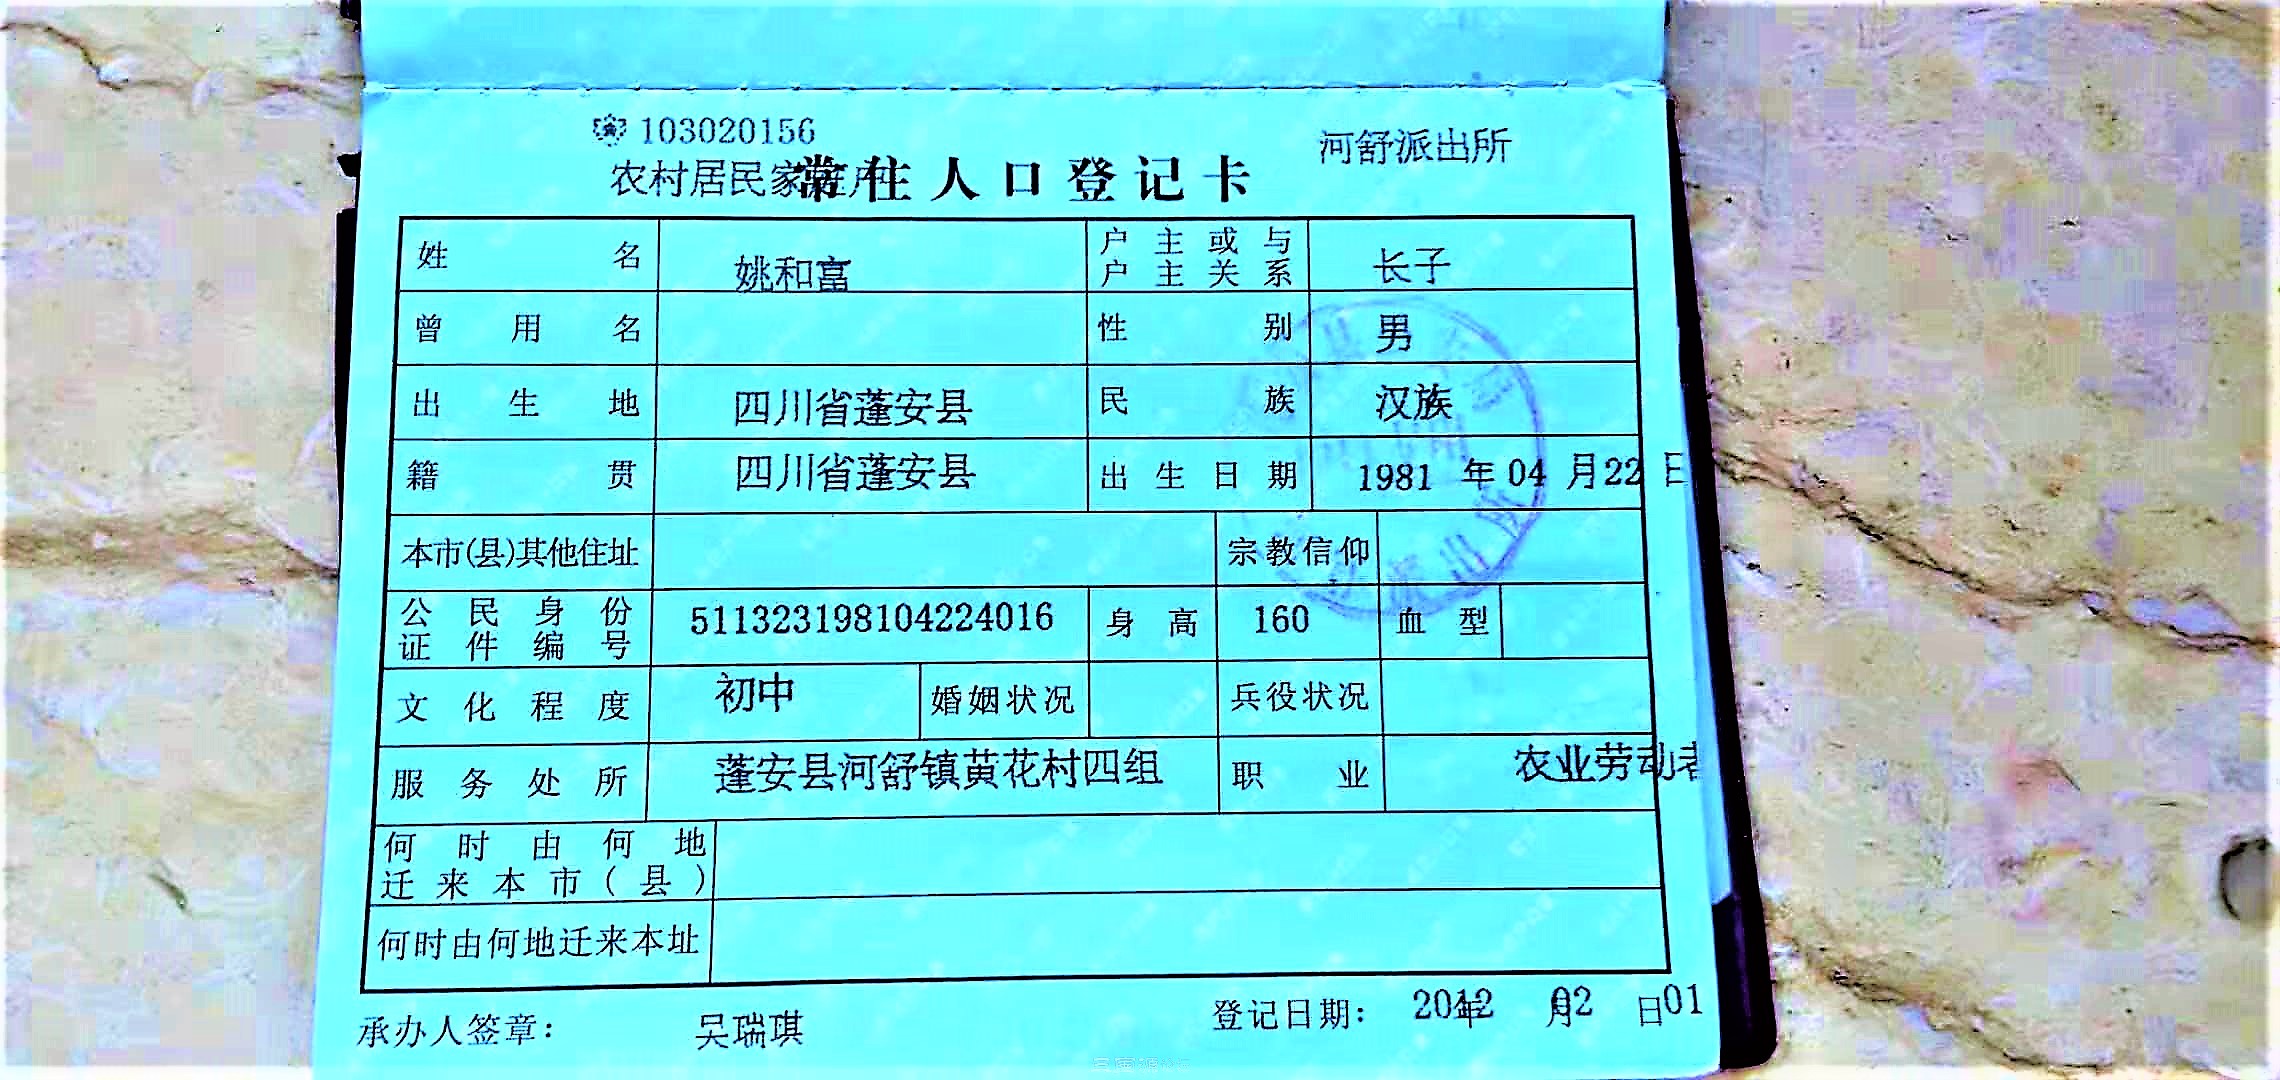 103020156
河舒派出所
农村居民家庭户
常住人口登记卡
姓名 姚和富 户主或与户主关系 长子
曾用名 性别 男
出生地 四川省蓬安县 民族 汉族
籍贯 四川省蓬安县 出生日期 1981 年 04 月 22 日
本市(县)其他住址 宗教信仰
公民身份证件编号 511323198104224016 身高 160 血型
文化程度 初中 婚姻状况 兵役状况
服务处所 蓬安县河舒镇黄花村四组 职业 农业劳动者
何时由何地迁来本市(县)
何时由何地迁来本址
承办人签章： 吴瑞琪 登记日期： 2012 年 02 月 01 日